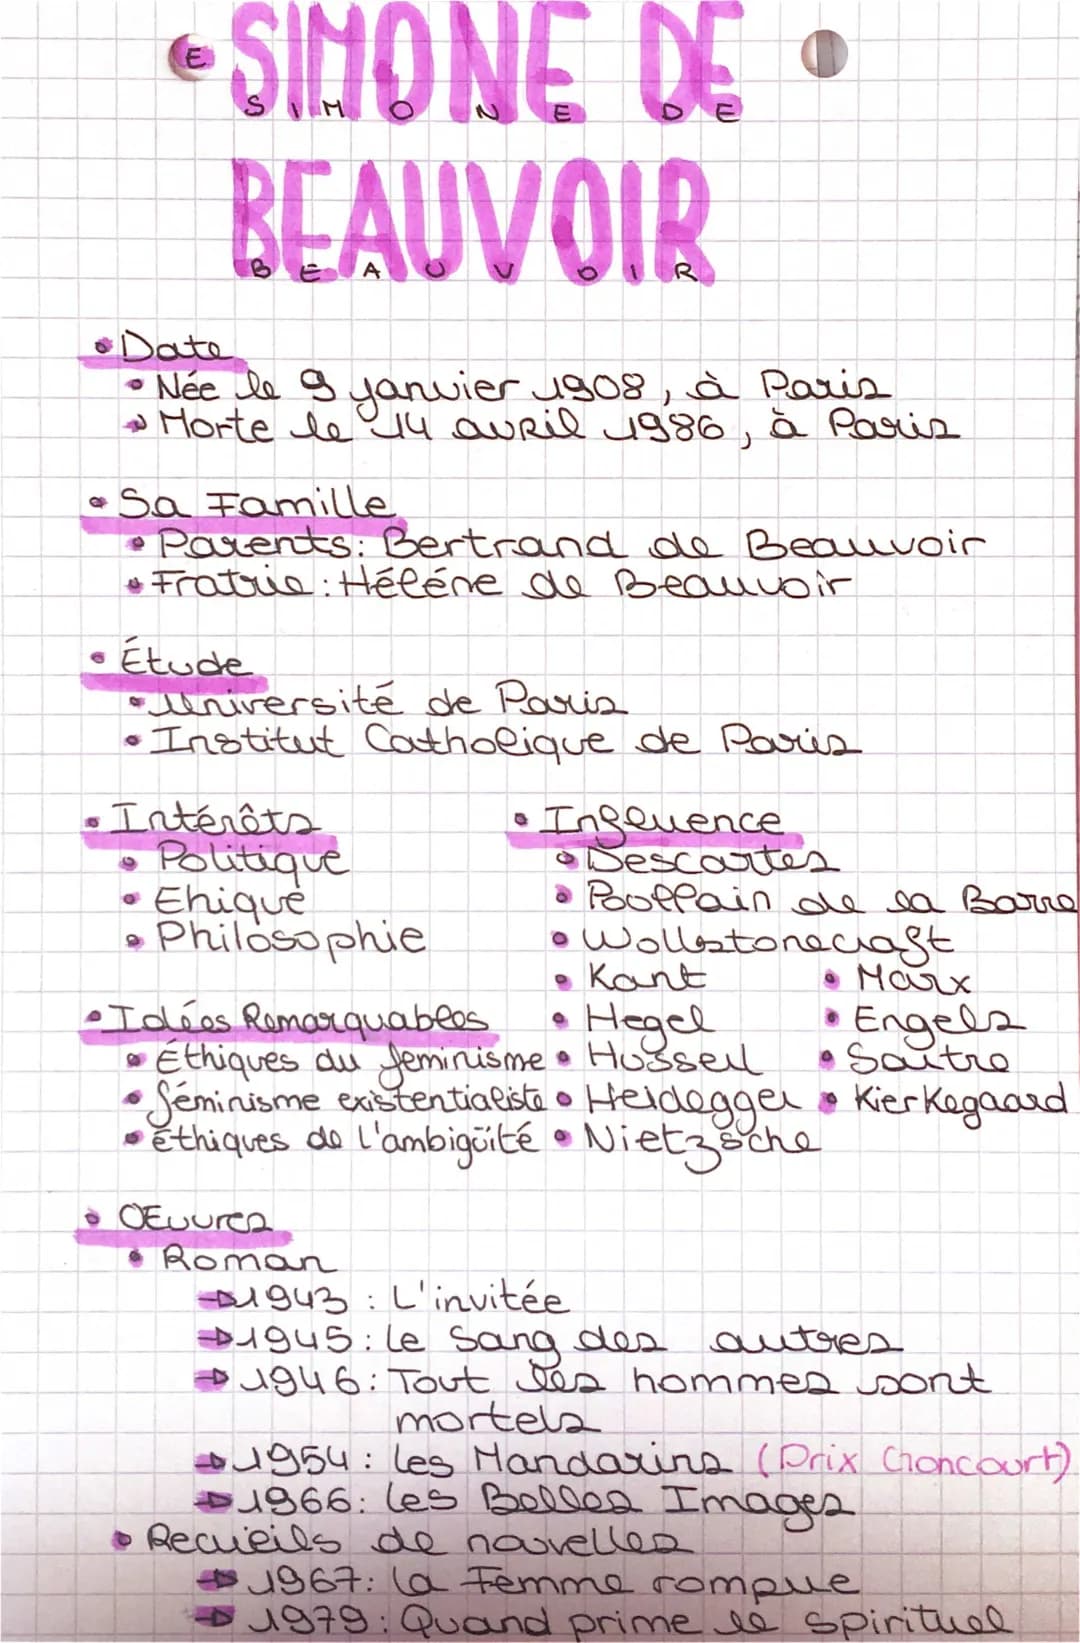 E
SIMONE DE
S I M O N E D E
BEAUVOIR
B E A U V O I R
• Date
• Née le 9 janvier 1908, à Paris
→ Morte le 14 avril 1986, à Paris
• Sa Famille
• Parents: Bertrand de Beauvoir
• Fratrie : Hélène de Beauvoir
• Étude
• Université de Paris
• Institut Catholique de Paris
• Intérêts
• Politique
• Ehique
• Philosophie
• Influence
• Descartes
• Poullain de la Barre
• Wollstonecraft
• Kant
• Hegel
• Husserl
• Heidegger
• Nietzsche
• Marx
• Engels
• Sartre
• Kierkegaard
• Idées Remarquables
• Éthiques du feminisme
• féminisme existentialiste
• éthiques de l'ambigüité
• Œuvres
• Roman
→ 1943 : L'invitée
→ 1945 : Le Sang des autres
→ 1946 : Tout les hommes sont
mortels
→ 1954 : Les Mandarins (Prix Goncourt)
→ 1966 : Les Belles Images
• Recueils de nouvelles
→ 1967 : La Femme rompue
→ 1979 : Quand prime le spirituel